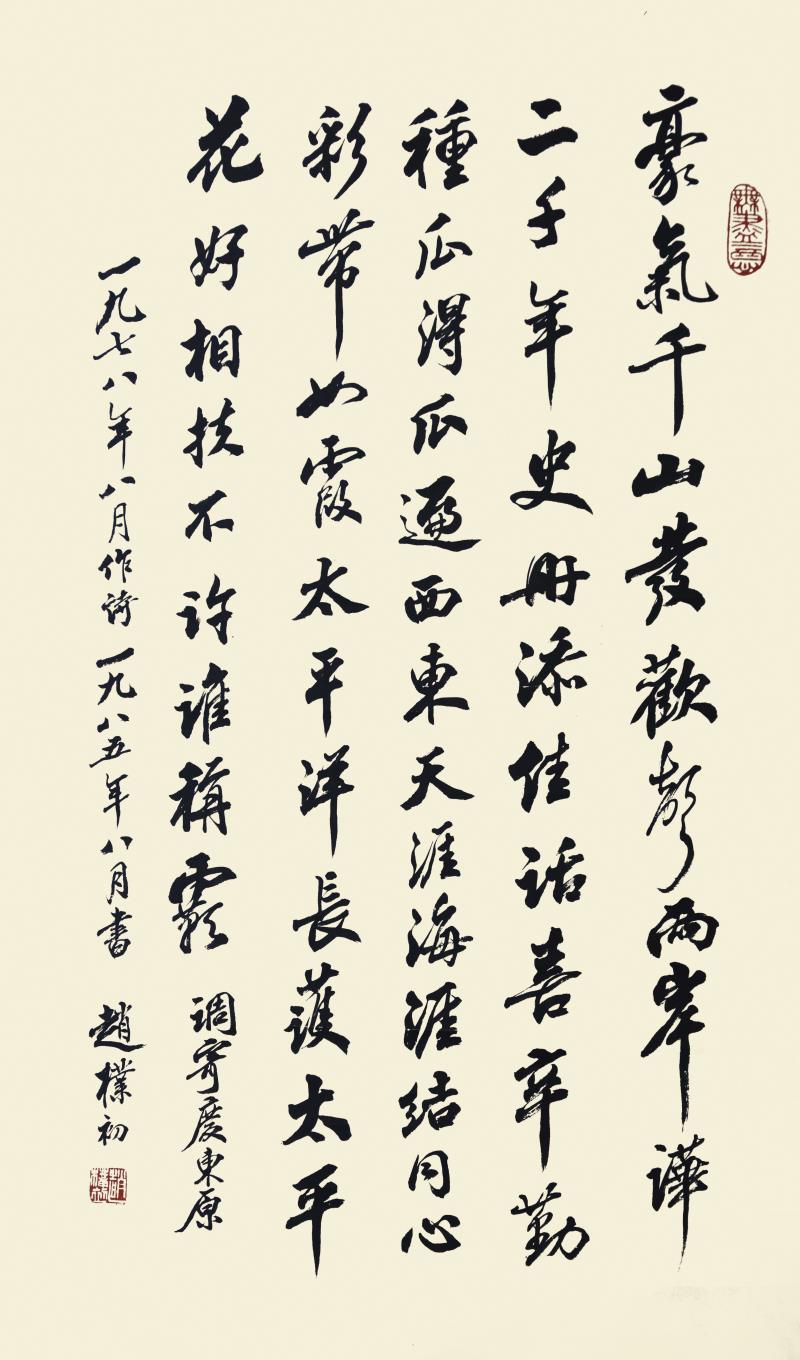 無盡意
豪氣千山發歡聲兩岸譁
二千年史册添佳話善辛勤
種瓜得瓜遍西東天涯海涯結同心
彩帶如霞太平洋長護太平
花好相扶不許誰稱霸 調寄慶東原
一九七八年八月作詩 一九八五年八月書 趙樸初
趙樸初